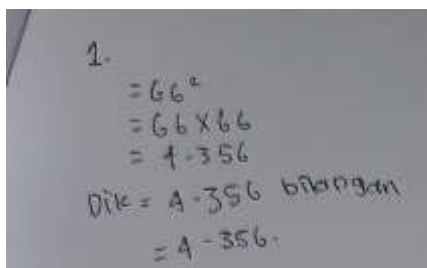 1.
= 66²
= 66 × 66
= 4.356
Dik = 4.356 bilangan
= 4-356.